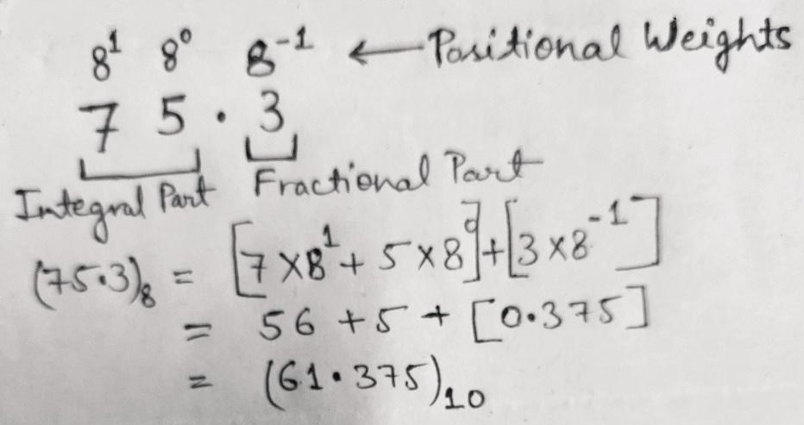 8¹ 8⁰ 8⁻¹ ← Positional Weights
7 5 . 3
Integral Part Fractional Part
(75.3)₈ = [7×8¹ + 5×8⁰]+[3×8⁻¹]
= 56 + 5 + [0.375]
= (61.375)₁₀